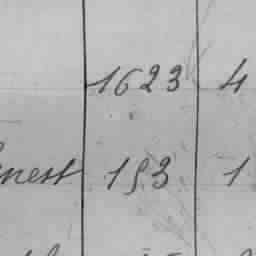 1623 4
nest 193 1